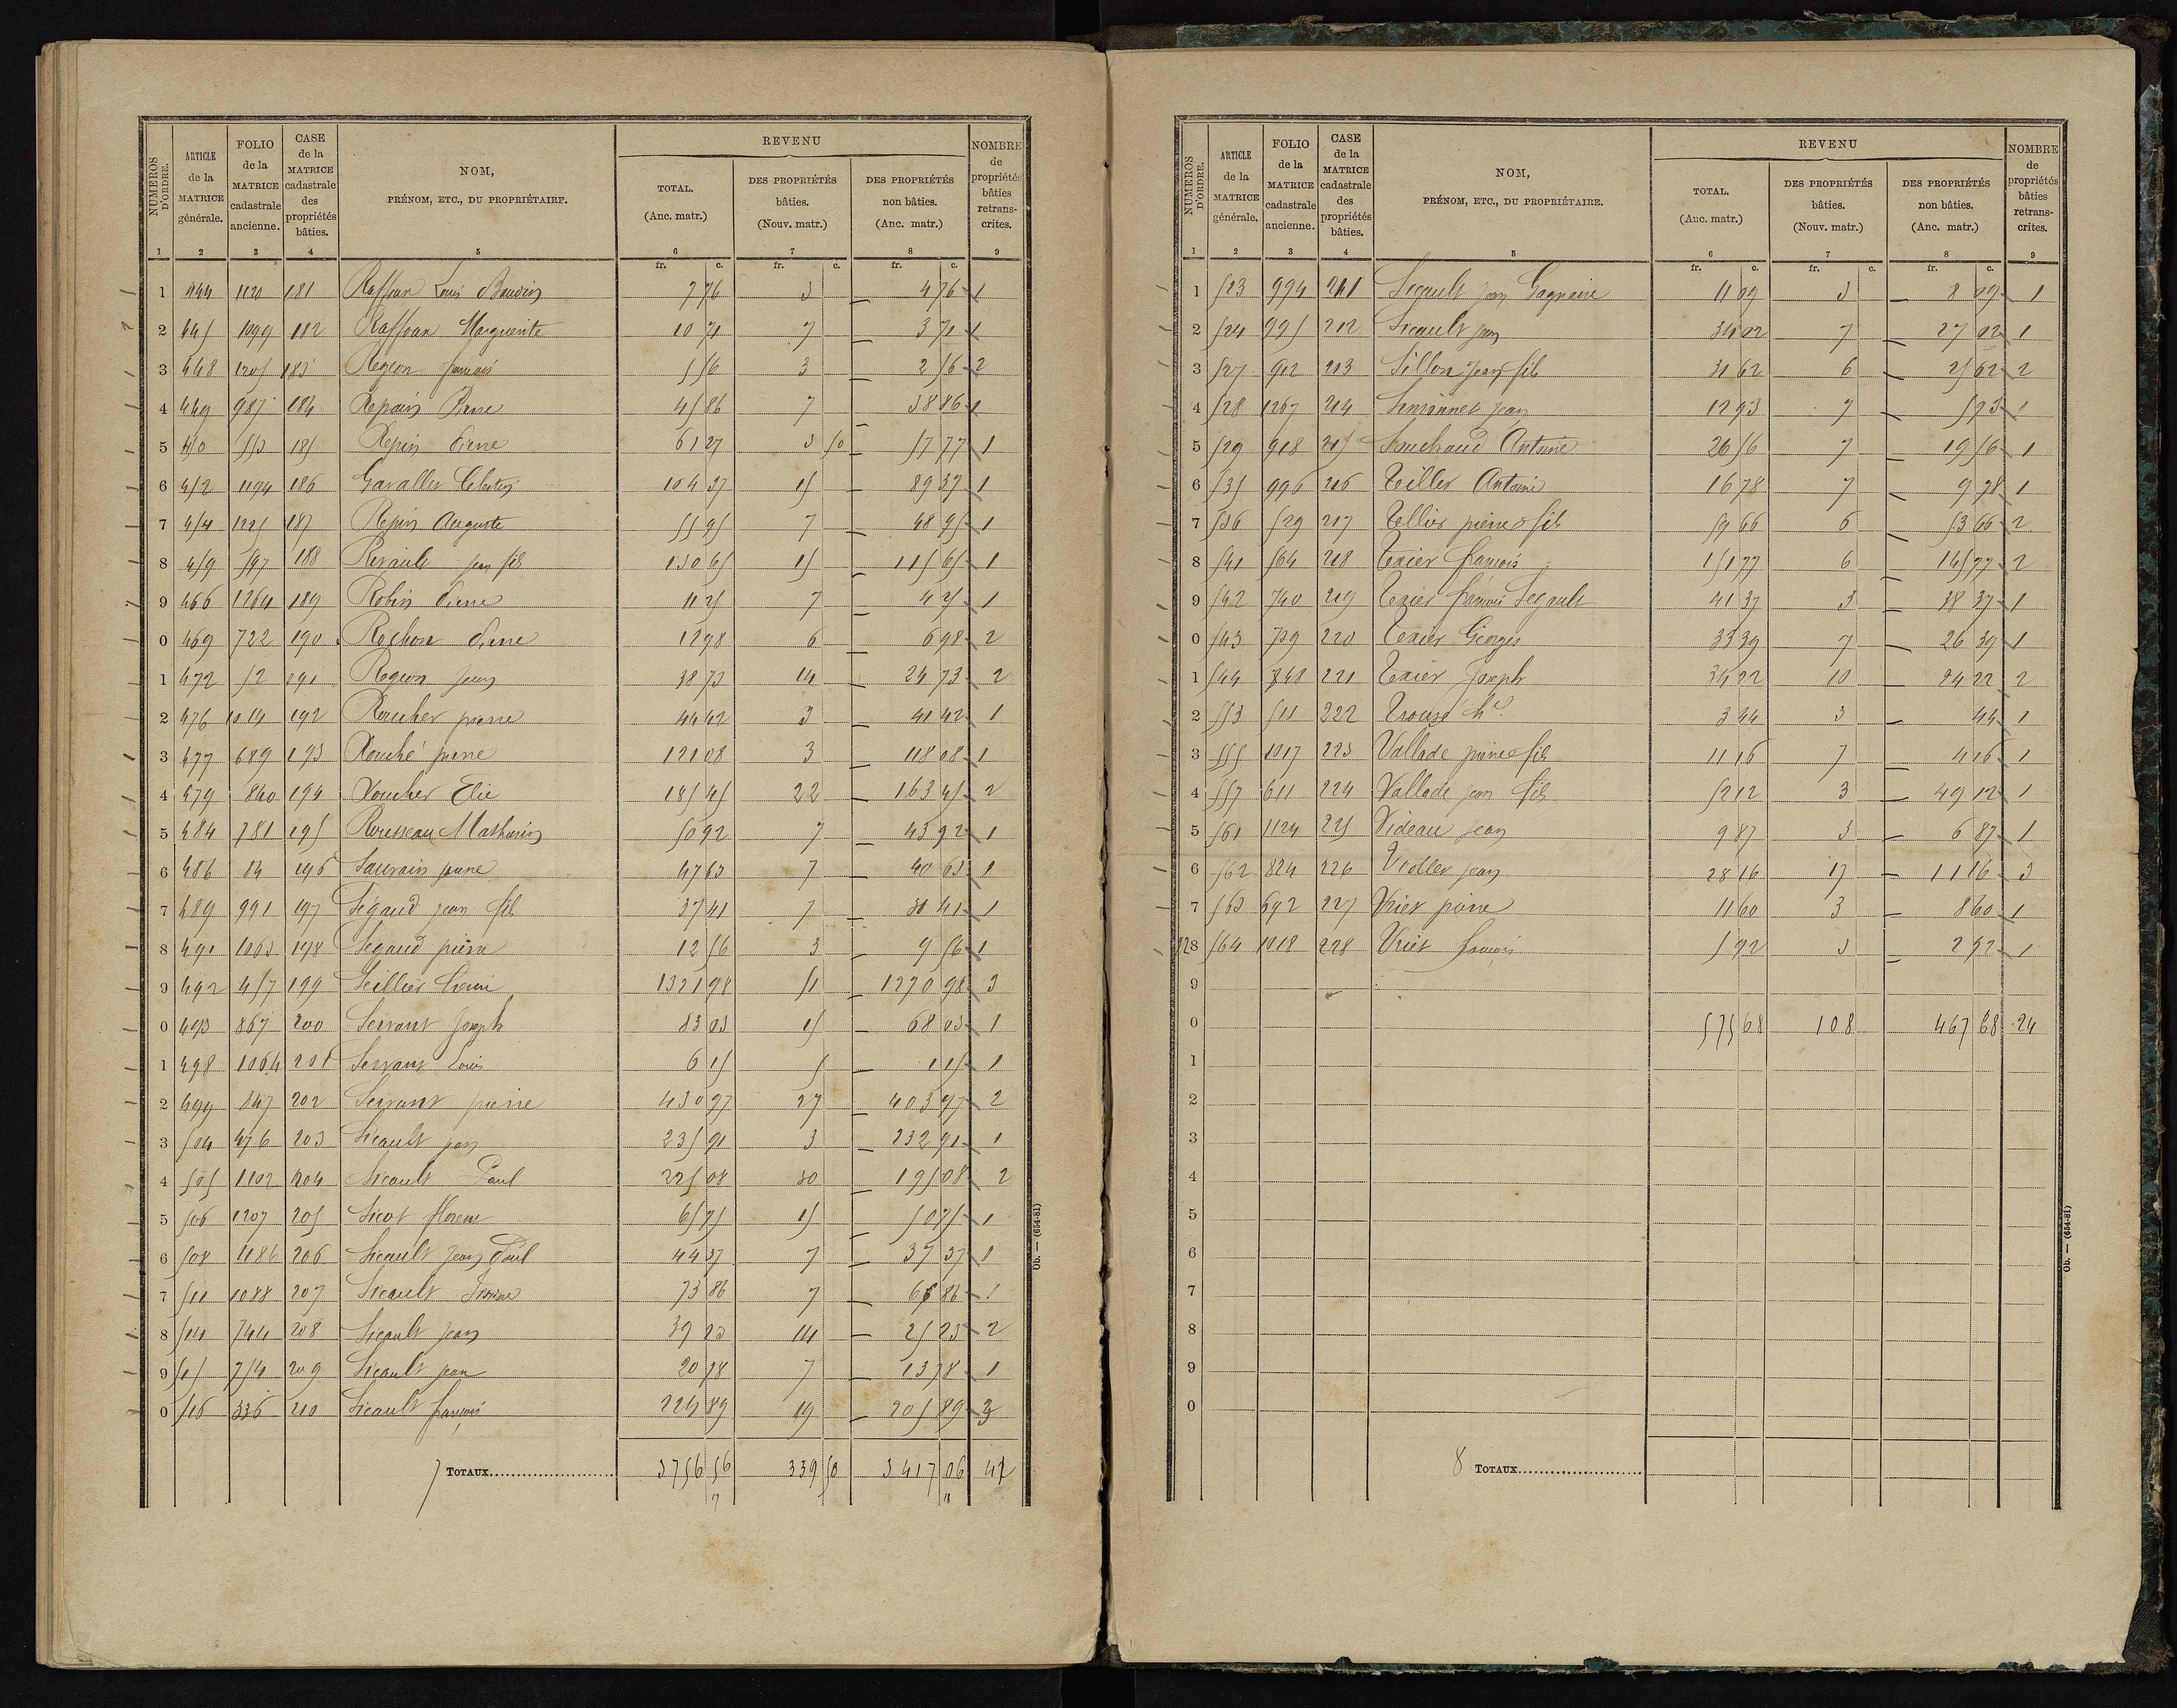 NUMÉROS D'ORDRE.
ARTICLE de la MATRICE générale.
FOLIO de la MATRICE cadastrale ancienne.
CASE de la MATRICE cadastrale des propriétés bâties.
NOM, PRÉNOM, ETC., DU PROPRIÉTAIRE.
REVENU
TOTAL. (Anc. matr.)
DES PROPRIÉTÉS bâties. (Nouv. matr.)
DES PROPRIÉTÉS non bâties. (Anc. matr.)
NOMBRE de propriétés bâties retranscrites.
1 2 3 4 5 6 7 8 9
fr. c. fr. c. fr. c.
1 444 1120 181 Raffoux Louis Baudin 7 76 3 — 4 76 1
2 445 1099 182 Raffoux Marguerite 10 71 7 — 3 71 1
3 448 1205 183 Regeon françois 5 56 3 — 2 56 2
4 449 987 184 Repain Pierre 45 86 7 — 38 86 1
5 450 553 185 Repin Pierre 61 27 3 50 57 77 1
6 452 1194 186 Gavaller Celestin 104 37 15 — 89 37 1
7 454 1225 187 Repin Auguste 55 95 7 — 48 95 1
8 459 597 188 Rivault jean fils 130 65 15 — 115 65 1
9 466 1264 189 Robin Pierre 11 25 7 — 4 25 1
0 469 722 190 Rochon Pierre 12 98 6 — 6 98 2
1 472 52 191 Rogeon Jean 38 73 14 — 24 73 2
2 476 1014 192 Roucher pierre 44 42 3 — 41 42 1
3 477 689 193 Rouché pierre 121 08 3 — 118 08 1
4 479 840 194 Roucher Elie 185 45 22 — 163 45 2
5 484 781 195 Rousseau Mathurin 50 92 7 — 43 92 1
6 486 84 196 Saurain jeune 47 63 7 — 40 63 1
7 489 991 197 Segaud jean fils 37 41 7 — 30 41 1
8 491 1063 198 Segaud pierre 12 56 3 — 9 56 1
9 492 457 199 Seillier 1321 98 51 — 1270 98 3
0 493 867 200 Servant Joseph 83 03 15 — 68 03 1
1 498 1064 201 Servant Louis 6 15 5 — 1 15 1
2 499 847 202 Servant pierre 430 97 27 — 403 97 2
3 504 476 203 Sicault jean 235 91 3 — 232 91 1
4 505 1102 204 Sicault Paul 225 08 30 — 195 08 2
5 506 1207 205 Sicot 65 75 15 — 50 75 1
6 508 1186 206 Sicault Jean Paul 44 37 7 — 37 37 1
7 511 1088 207 Sicault 73 86 7 — 66 86 1
8 514 744 208 Sicault Jean 39 23 14 — 25 23 2
9 515 754 209 Sicault jean 20 78 7 — 13 78 1
0 516 336 210 Sicault françois 224 89 19 — 205 89 3
7 TOTAUX 3756 56 339 50 3417 06 42
Ob. — (654-81)
NUMÉROS D'ORDRE.
ARTICLE de la MATRICE générale.
FOLIO de la MATRICE cadastrale ancienne.
CASE de la MATRICE cadastrale des propriétés bâties.
NOM, PRÉNOM, ETC., DU PROPRIÉTAIRE.
REVENU
TOTAL. (Anc. matr.)
DES PROPRIÉTÉS bâties. (Nouv. matr.)
DES PROPRIÉTÉS non bâties. (Anc. matr.)
NOMBRE de propriétés bâties retranscrites.
1 2 3 4 5 6 7 8 9
fr. c. fr. c. fr. c.
1 523 994 211 Sicault jean Gagnaire 11 09 3 — 8 09 1
2 524 995 212 Sicault jean 34 02 7 — 27 02 1
3 527 912 213 Sillon Jean fils 31 62 6 — 25 62 2
4 528 1267 214 Simonnet Jean 12 93 7 — 5 93 1
5 529 918 215 Souchaud Antoine 26 56 7 — 19 56 1
6 535 996 216 Tiller Antoine 16 78 7 — 9 78 1
7 536 529 217 Tellier pierre fils 59 66 6 — 53 66 2
8 541 564 218 Texier françois 151 77 6 — 145 77 2
9 542 740 219 Texier françois Segault 41 37 3 — 38 37 1
0 543 729 220 Texier Georges 33 39 7 — 26 39 1
1 544 348 221 Texier Joseph 34 22 10 — 24 22 2
2 553 511 222 3 44 3 — 44 1
3 555 1017 223 Vallade pierre fils 11 16 7 — 4 16 1
4 557 611 224 Vallade jean fils 52 12 3 — 49 12 1
5 561 1124 225 Videau Jean 9 87 3 — 6 87 1
6 562 824 226 Viollet jean 28 16 17 — 11 16 3
7 563 692 227 Vriet pierre 11 60 3 — 8 60 1
228 564 1018 228 Vriet françois 5 92 3 — 2 92 1
9
0 575 68 108 467 68 24
1
2
3
4
5
6
7
8
9
0
8 TOTAUX
Ob. — (654-81)